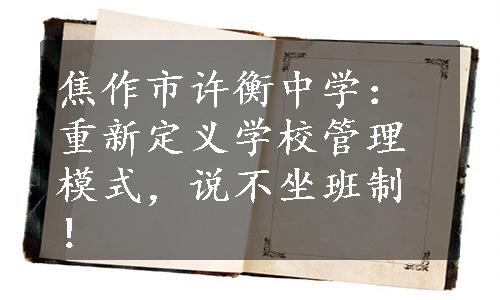 焦作市许衡中学：
重新定义学校管理
模式，说不坐班制
！